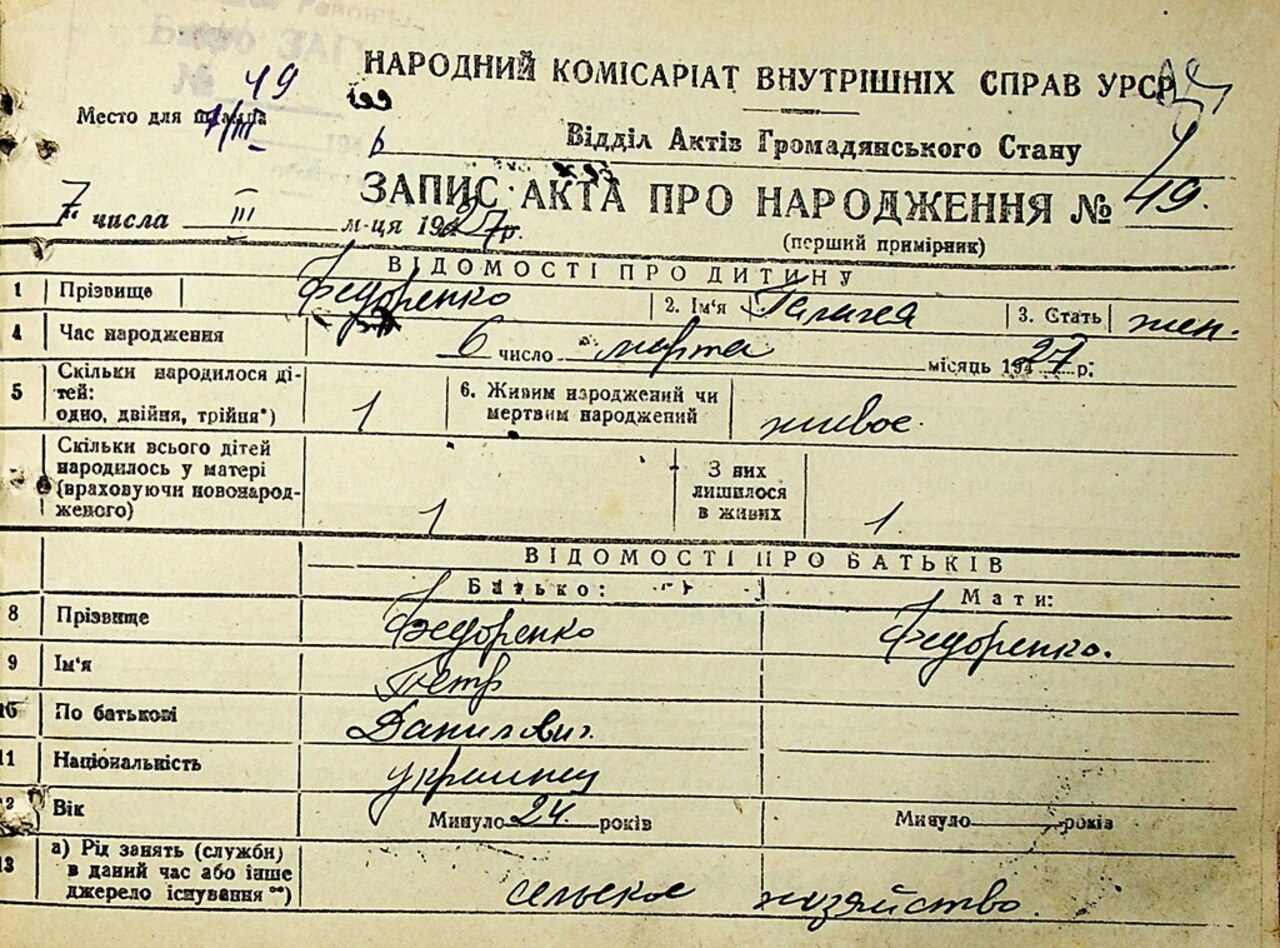 НАРОДНИЙ КОМІСАРІАТ ВНУТРІШНІХ СПРАВ УРСР
49
Место для штампа 7/III
Відділ Актів Громадянського Стану
ЗАПИС АКТА ПРО НАРОДЖЕННЯ № 49.
7 числа III м-ця 1927р.
(перший примірник)
ВІДОМОСТІ ПРО ДИТИНУ
1 Прізвище Федоренко 2. Ім'я 3. Стать жен.
4 Час народження 6 число марта місяць 1927 р.
5 Скільки народилося ді-
тей:
одно, двійня, трійня*) 1 6. Живим народжений чи
мертвим народжений живое.
Скільки всього дітей
народилось у матері
(враховуючи новонарод-
женого) 1 З них
лишилося
в живих 1.
ВІДОМОСТІ ПРО БАТЬКІВ
Батько: Мати:
8 Прізвище Федоренко Федоренко.
9 Ім'я Петр
10 По батькові Данилович.
11 Національність украинец
12 Вік Минуло 24. років Минуло років
13 а) Рід занять (служби)
в даний час або інше
джерело існування **) сельское хозяйство.